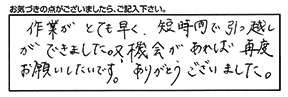 お気づきの点がございましたら、ご記入下さい。
作業がとても早く、短時間で引っ越し
ができました。又機会があれば再度
お願いしたいです。ありがとうございました。